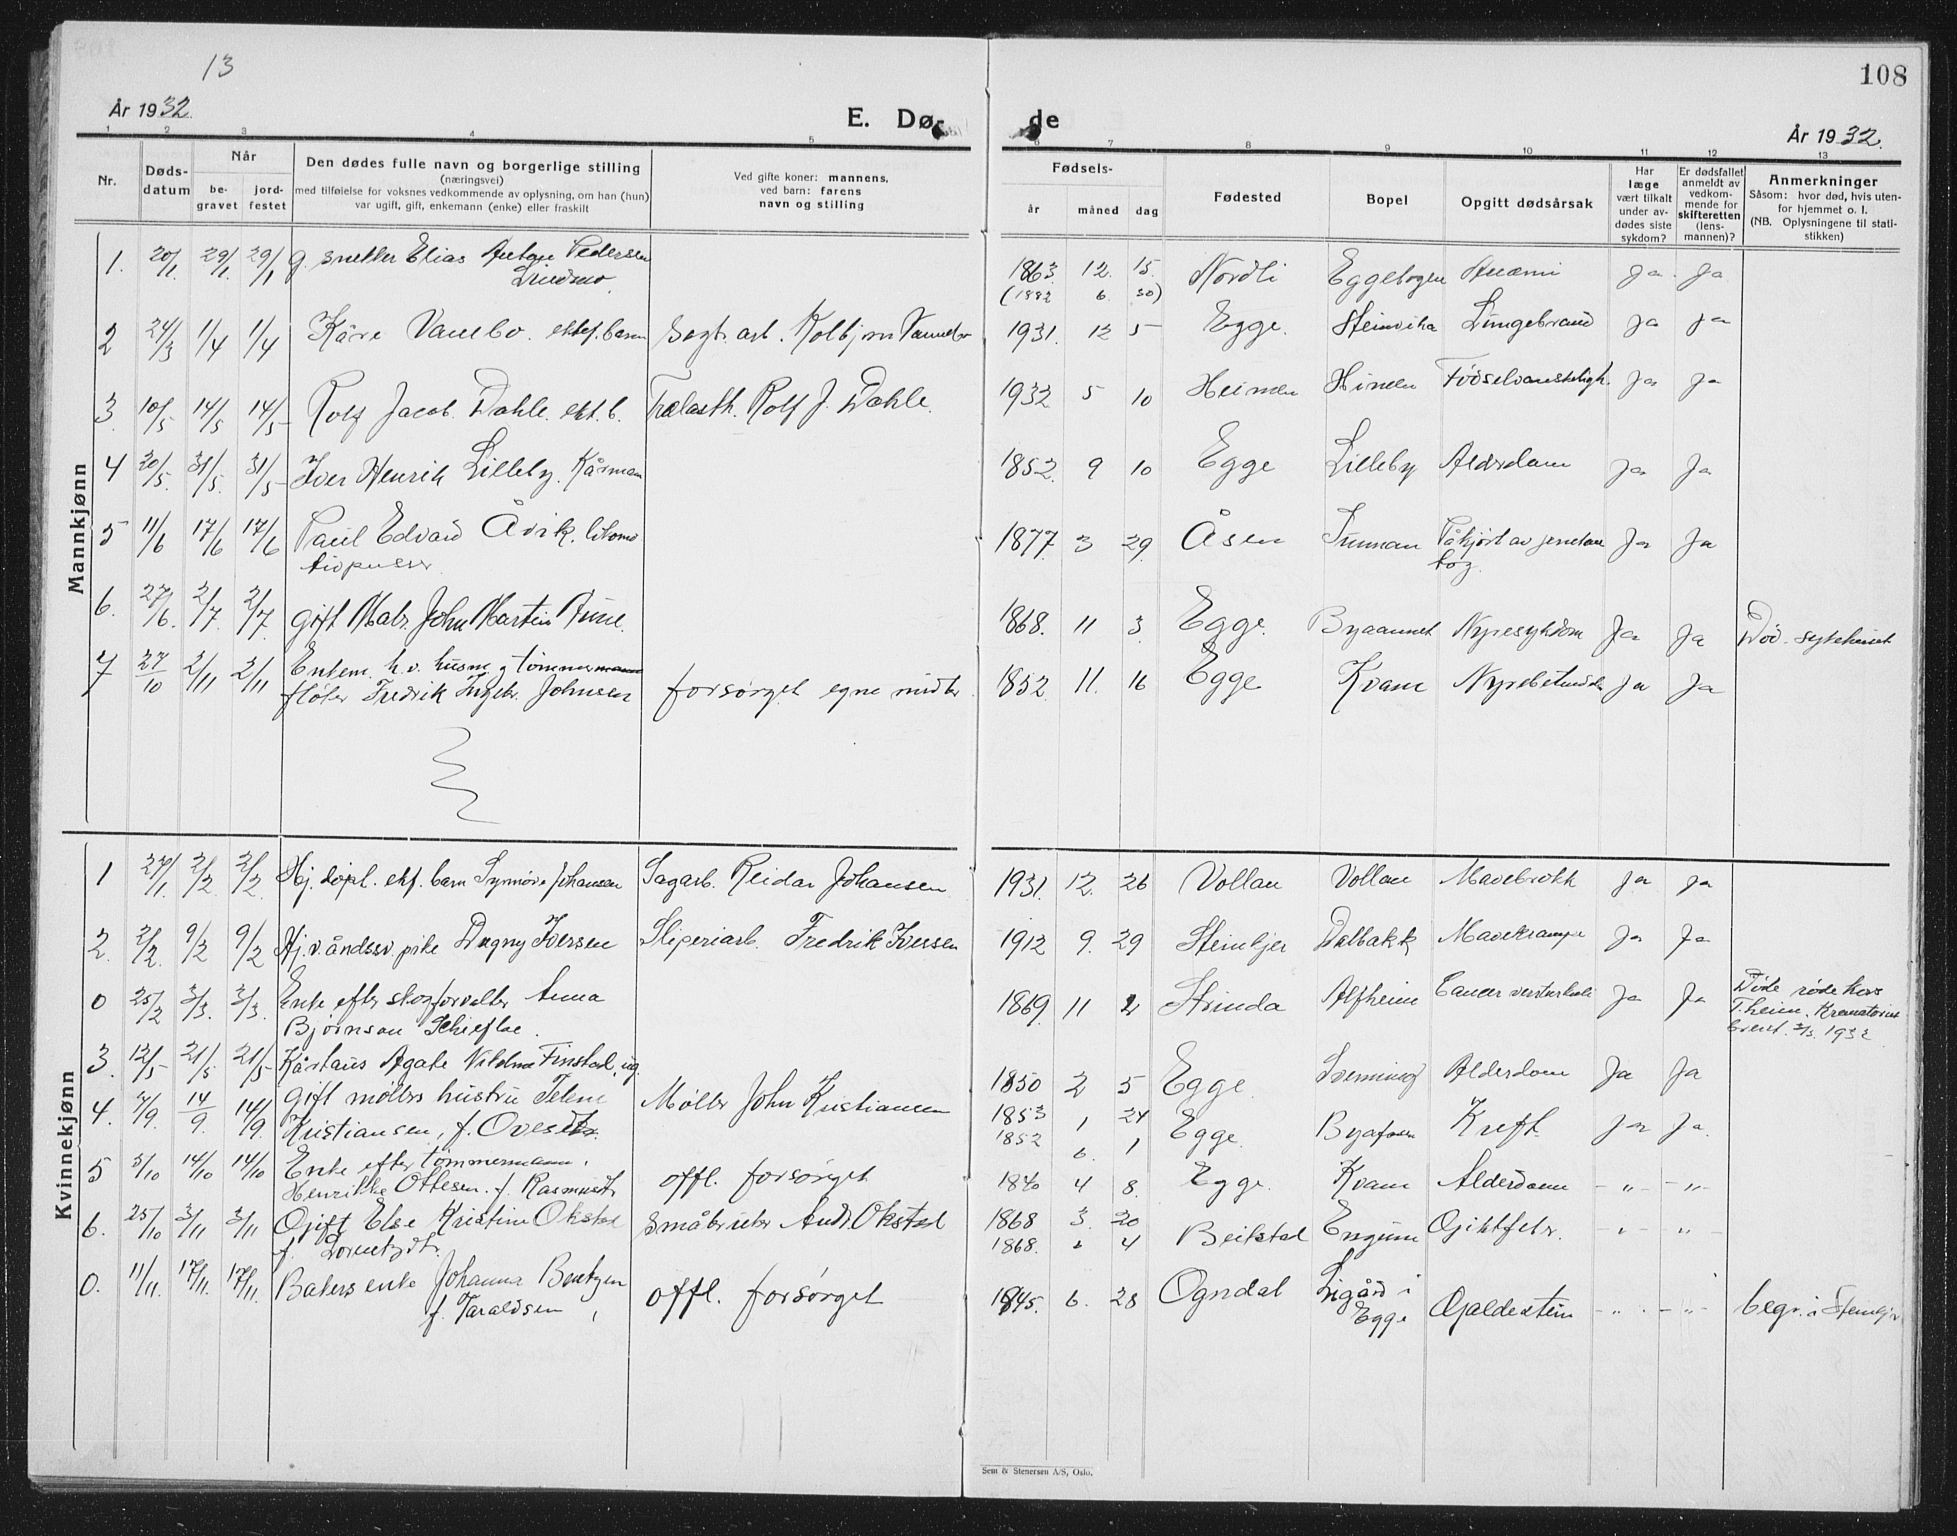 13
108
År 1932.
E. Dø- de
År 1932.
1 2 3 4 5 6 7 8 9 10 11 12 13
Nr.
Døds-
datum
Når
be-
gravet
jord-
festet
Den dødes fulle navn og borgerlige stilling
(næringsvei)
med tilføielse for voksnes vedkommende av oplysning, om han (hun)
var ugift, gift, enkemann (enke) eller fraskilt
Ved gifte koner: mannens,
ved barn: farens
navn og stilling
Fødsels-
år måned dag
Fødested
Bopel
Opgitt dødsårsak
Har
læge
vært tilkalt
under av-
dødes siste
sykdom?
Er dødsfallet
anmeldt av
vedkom-
mende for
skifteretten
(lens-
mannen)?
Anmerkninger
Såsom: hvor død, hvis uten-
for hjemmet o. l.
(NB. Oplysningene til stati-
stikken)
Mannkjønn
1. 20/1 29/1 29/1 g. snekker Elias Anton Pedersen 1863 12 15. Nordli Eggebogen Anæmi Ja Ja
Lindmo (1882 6 30)
2 24/3 1/4 1/4 Kåre Vannebo. ektef. barn Segt. arb. Kolbjørn Vannebo 1931. 12 5 Egge. Steinvika Lungebrand Ja Ja
3 10/5 14/5 14/5 Rolf Jacob Dahle. ekt. b. Trælasth. Rolf J. Dahle. 1932 5 10 Heimen Himen Fødselvanskeligh. Ja Ja
4 20/5. 31/5. 31/5 Iver Henrik Lilleby. Kårman 1852 9 10 Egge Lilleby Alderdom Ja Ja
5 11/6 17/6 17/6 Paul Edvard Åvik. lokomo 1877 3 29 Åsen Sunnan Påkjørt av jernbane Ja Ja
tivpusser tog
6. 27/6. 2/7. 2/7. gift Maler John Martin Aune. 1868. 11 3 Egge. Byaannet Nyresykdom Ja Ja Død. sykehuset
7 27/10 2/11 2/11 Enkem. h.v. husm. og tømmermann
fløter Fredrik Ingebr. Johnsen forsørget egne midler. 1852. 11. 16 Egge Kvam Nyrebetendelse Ja Ja
Kvinnekjønn
1 27/1. 2/2 2/2 Hj. døpt. ekf. barn Synnøve Johansen Sagarb. Reidar Johansen 1931. 12. 26 Vollan Vollan Mavebrokk Ja Ja
2. 2/2. 9/2 9/2 Hj. v. åndssv. pike Dagny Iversen Sliperiarb. Fredrik Iversen 1912 9. 29 Steinkjer Dalbakk Mavekrampe Ja Ja
0 25/2 3/3. 3/3. Enke efter skogforvalter Anna 1869. 11 2 Strinda Alfheim Cancer ventriculi Ja Ja Døde røde kors
Bjørnson Schiefloe. T.heim. Krematoriet
brent. 3/3. 1932
3. 12/5 21/5 21/5 Kårtaus Agate Vilhelmine Finstad, ug. 1850 2 5 Egge Svenning Alderdom Ja Ja
4. 7/9. 14/9. 14/9. Gift møllers hustru Telene Møller John Kristiansen 1853 1 24 Egge. Byafossen Kreft Ja Ja.
Kristiansen, f. Ovesdtr. 1852 6 1
5 5/10 14/10 14/10 Enke efter tømmermann, offl. forsørget 1840 4 8. Egge. Kvam Alderdom - „ - - „ -
Henrikke Ottesen. f. Rasmusdtr
6. 25/10 3/11 3/11 Gift Else Kristine Okstad Småbruker Andr. Okstad 1868 3. 20 Beitstad Enguin Gihtfebr. - „ - „
f. Lorentzdtr. 1868. 2 4
0. 11/11. 17/11. 17/11. Bakers enke Johanna Bentzen offl. forsørget 1845. 6. 28 Ogndal Ligård i Galdestein - „ - - „ - begr. i Steinkjer
f. Taraldsen Egge
Sem & Stenersen A/S, Oslo.